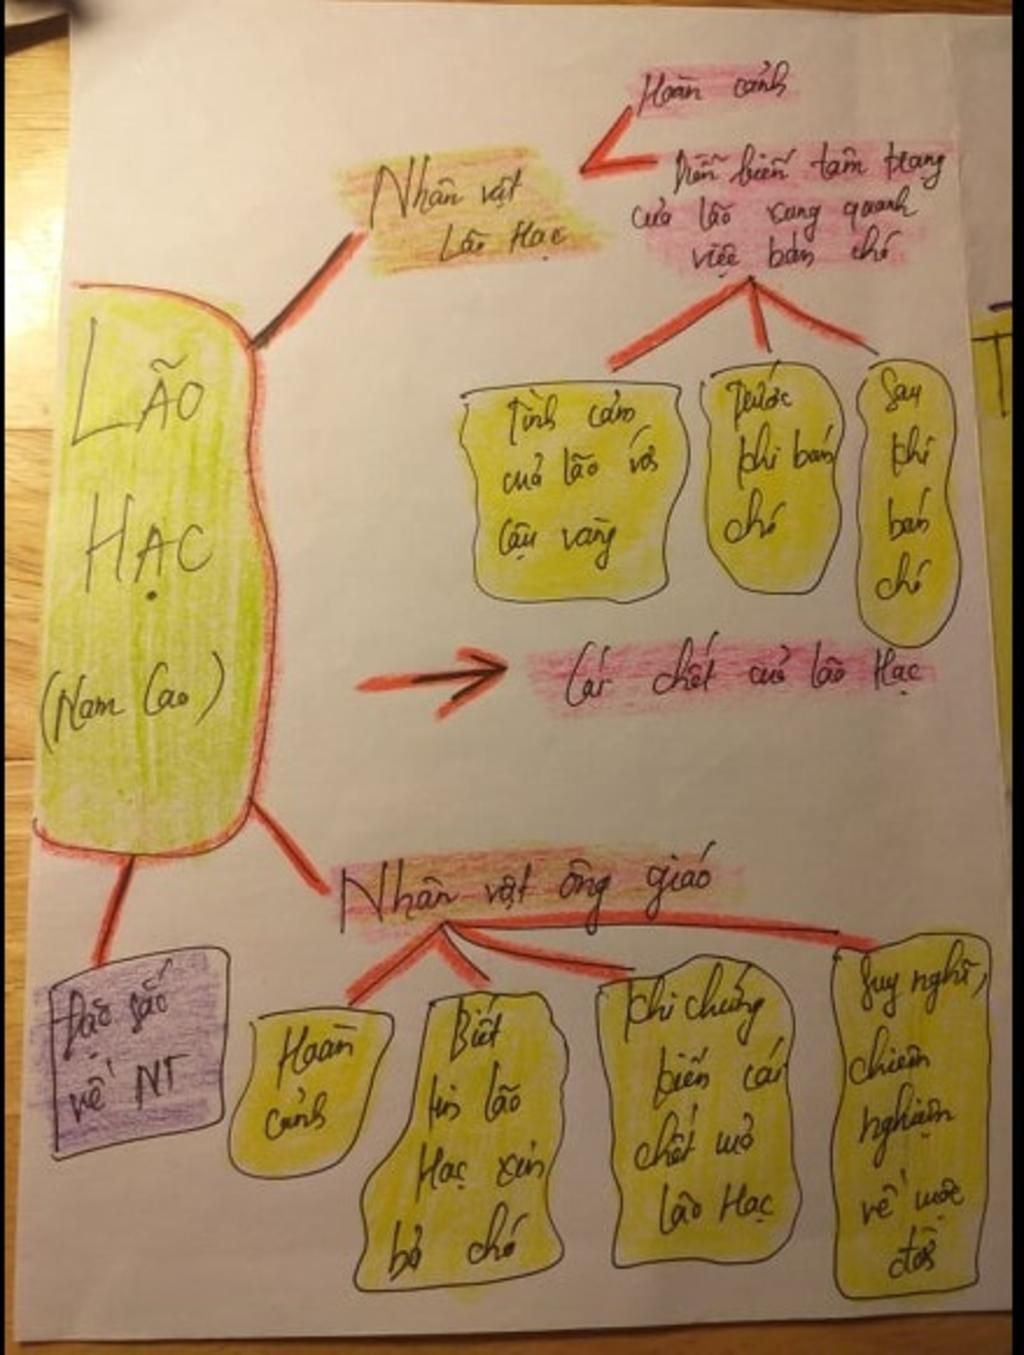 LÃO
HẠC
(Nam Cao)
Nhân vật
Lão Hạc
Hoàn cảnh
Diễn biến tâm trạng
của lão xung quanh
việc bán chó
Tình cảm
của lão với
cậu vàng
Trước
khi bán
chó
Sau
khi
bán
chó
Cái chết của lão Hạc
Nhân vật ông giáo
Hoàn
cảnh
Biết
tin lão
Hạc xin
bả chó
Khi chứng
kiến cái
chết của
lão Hạc
Suy nghĩ,
chiêm
nghiệm
về cuộc
đời
Đặc sắc
về NT
T